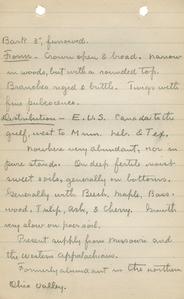 Bark 3", furrowed.
Form - Crown open & broad. Narrow
in woods, but with a rounded top.
Branches rigid & brittle. Twigs with
fine pubescence.
Distribution - E. U.S. Canada to the
gulf, west to Minn. Neb. & Tex.
Nowhere very abundant, nor in
pure stands. On deep fertile moist
sweet soils, generally on bottoms.
Generally with Beech, Maple, Bass-
wood, Tulip, Ash, & Cherry. Growth
very slow on poor soil.
Present supply from Missouri and
the Western Appalachians.
Formerly abundant in the northern
Ohio Valley.